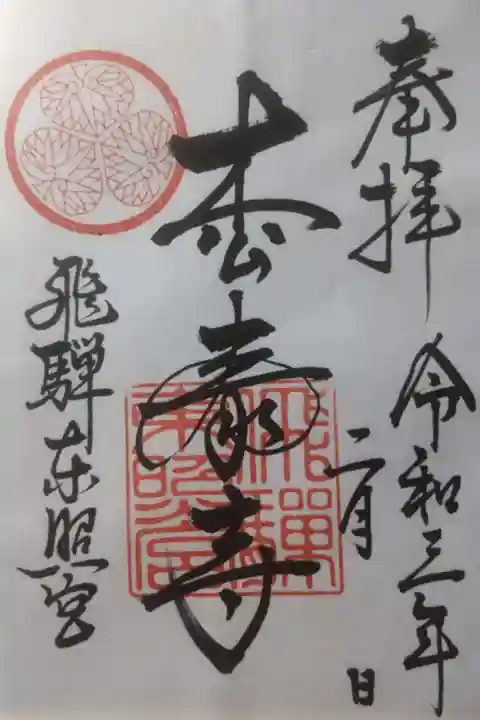 奉拝
令和三年
二月 日
枩泰寺
飛騨東照宮
飛騨
東照宮